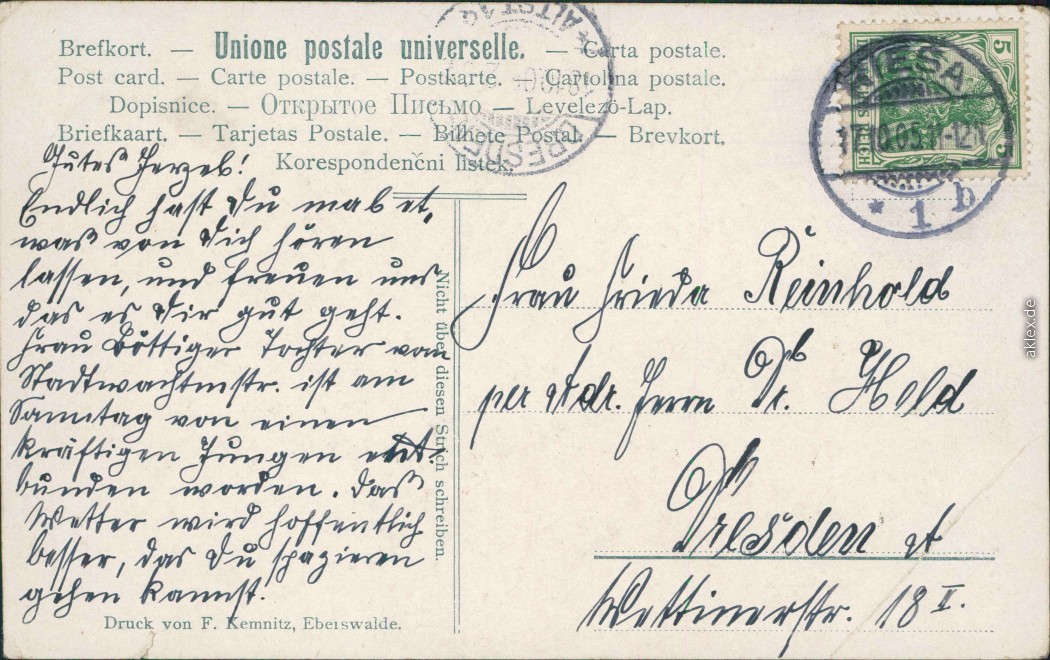 Brefkort. — Unione postale universelle. — Carta postale.
Post card. — Carte postale. — Postkarte. — Cartolina postale.
Dopisnice. — Открытое Письмо — Levelező-Lap.
Briefkaart. — Tarjetas Postale. — Bilhete Postal. — Brevkort.
Korespondenčni listek.
ALTSTADT
DRESDEN
RIESA
17.10.05.11-12V
* 1 b
5
5
REICH
Gutes Herzel!
Endlich hast Du mal et,
was von Dich hören
lassen, und freuen uns
das es Dir gut geht.
Frau Böttiger Tochter vom
Stadtwachtmstr. ist am
Sonntag von einen
kräftigen Jungen ent,
bunden worden. Das
Wetter wird hoffentlich
besser, das Du spazieren
gehen kannst.
Nicht über diesen Strich schreiben.
Frau Frieda Reinhold
per Adr. Herrn Dr. Held
Dresden A
Wettinerstr. 18 II.
Druck von F. Kemnitz, Eberswalde.
aklex.de